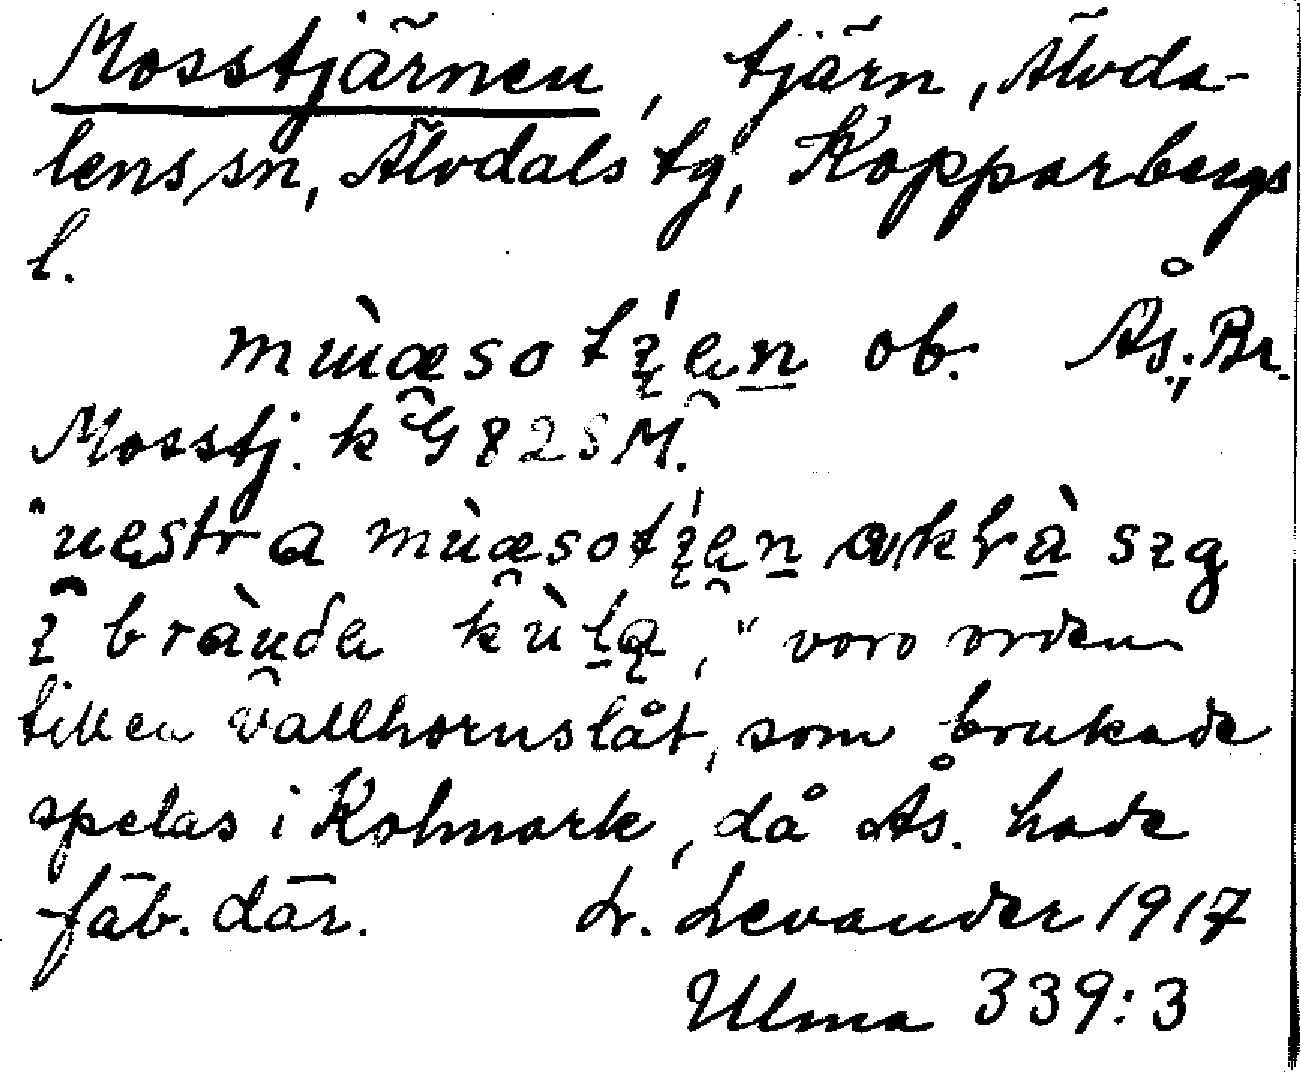 Mosstjärnen, tjärn, Älvda-
lens sn, Älvdals tg, Kopparbergs
l.
mùæsotʒęn ob. Ås., Br.
Mosstj. k G 82 SM.
"uestra mùæsotʒęn krà sıg
ı bràuda kùlą," voro orden
till en vallhornslåt, som brukade
spelas i Kolmark, då Ås. hade
fäb. där. L. Levander 1917
Ulma 339:3